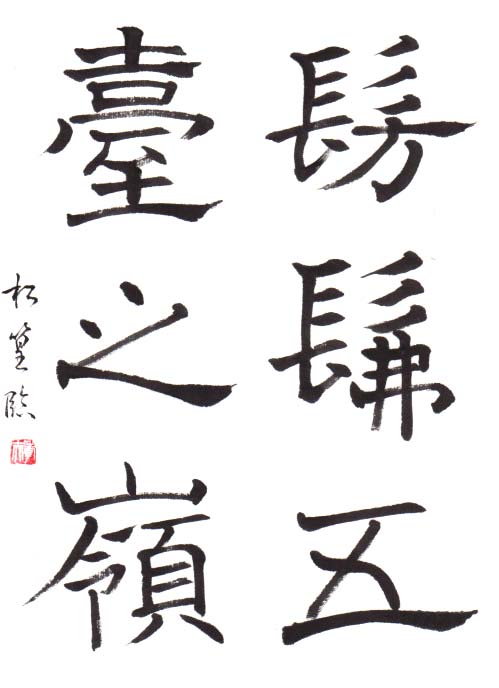 髣髴五
臺之嶺
松篁臨